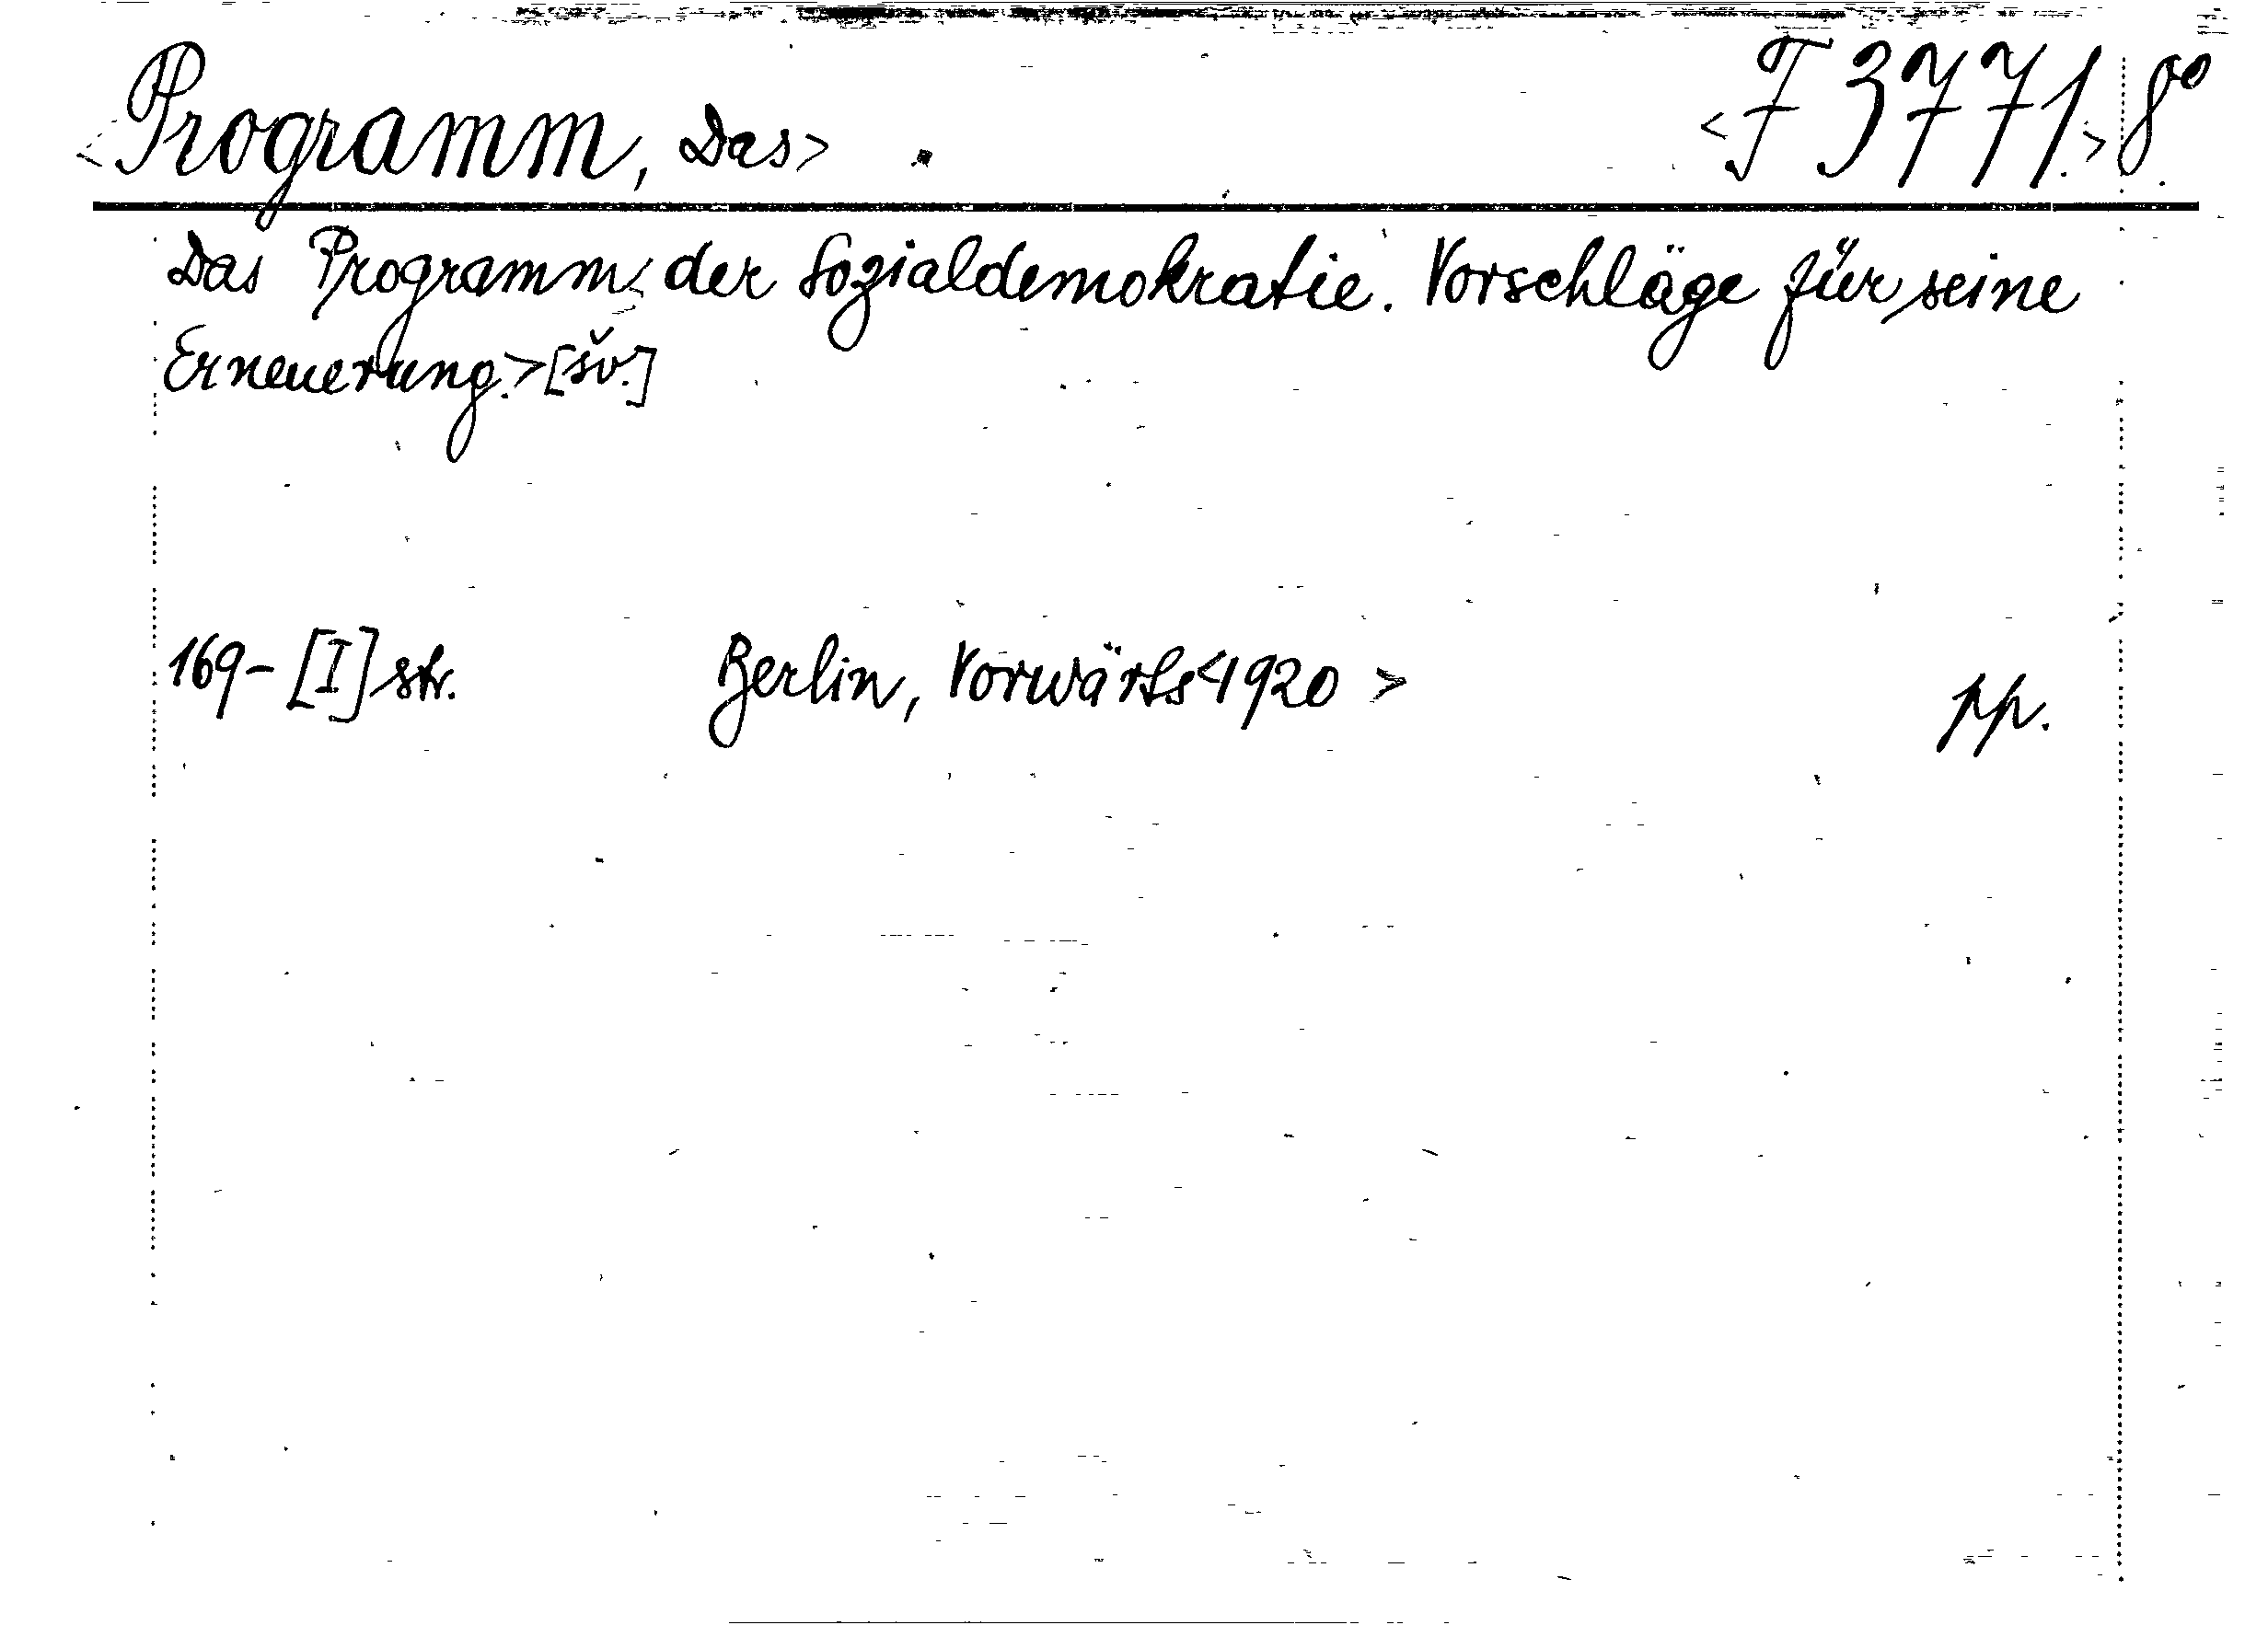 <Programm, Das> . <F 3771.> 8°.
Das Programm< der Sozialdemokratie. Vorschläge für seine
Erneuerung.>[šv.]
169-[I] str. Berlin, Vorwärts<1920 > pp.